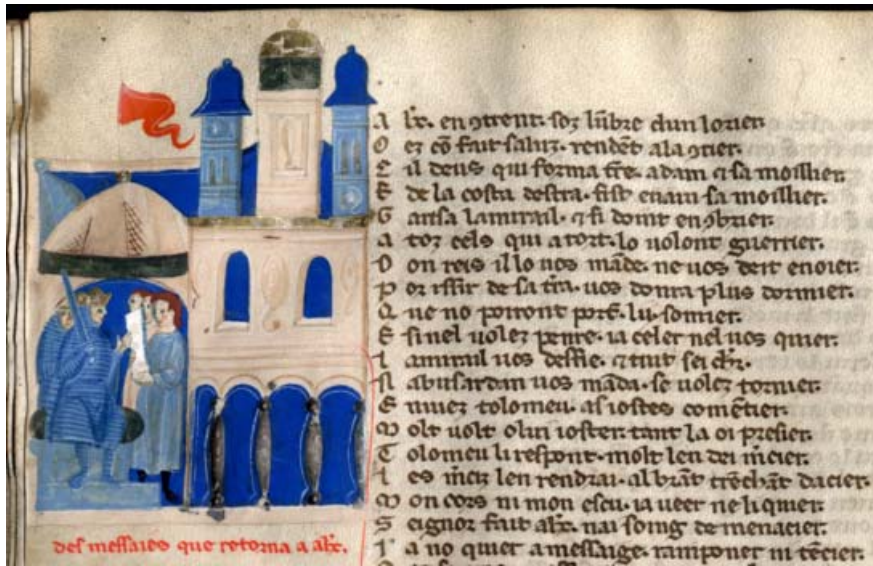 en ꝯtrent. soz lūbre dun lorier.
O ez cō fait saluz. rendēt ala ꝯtier.
C il deus qui forma tr̄e. adam ⁊ sa moillier.
E de la costa destra. fist euam sa moillier.
G arisa lamirail. ⁊ si enꝯbrier.
A toz cels qui a tort. lo uolont guerrier.
D on reis il lo uos māde. ne uos deit enoier.
P or issir de sa tr̄a. uos donra plus dormier.
Q ue no poiront somier.
E sinel uolez penre. ia celer nel uos quier.
L amirail uos desfie. ⁊ tuit sei chr̄.
abusardan uos māda. se uolez tornier.
E nuiez tolomeu. as iostes comētier.
M olt uolt ioster. tant la oi presier.
T olomeu li respont. molt len dei m̄cier.
L es m̄ciz len rendrai. al brāt trēchāt dacier.
M on cors ni mon escu. ia ueer ne li quier.
S eignor fait alx̄. nai soing de menacier.
I a no quier a messaige. ramponer ni tēcier.
des messaies que retorna a alx̄.